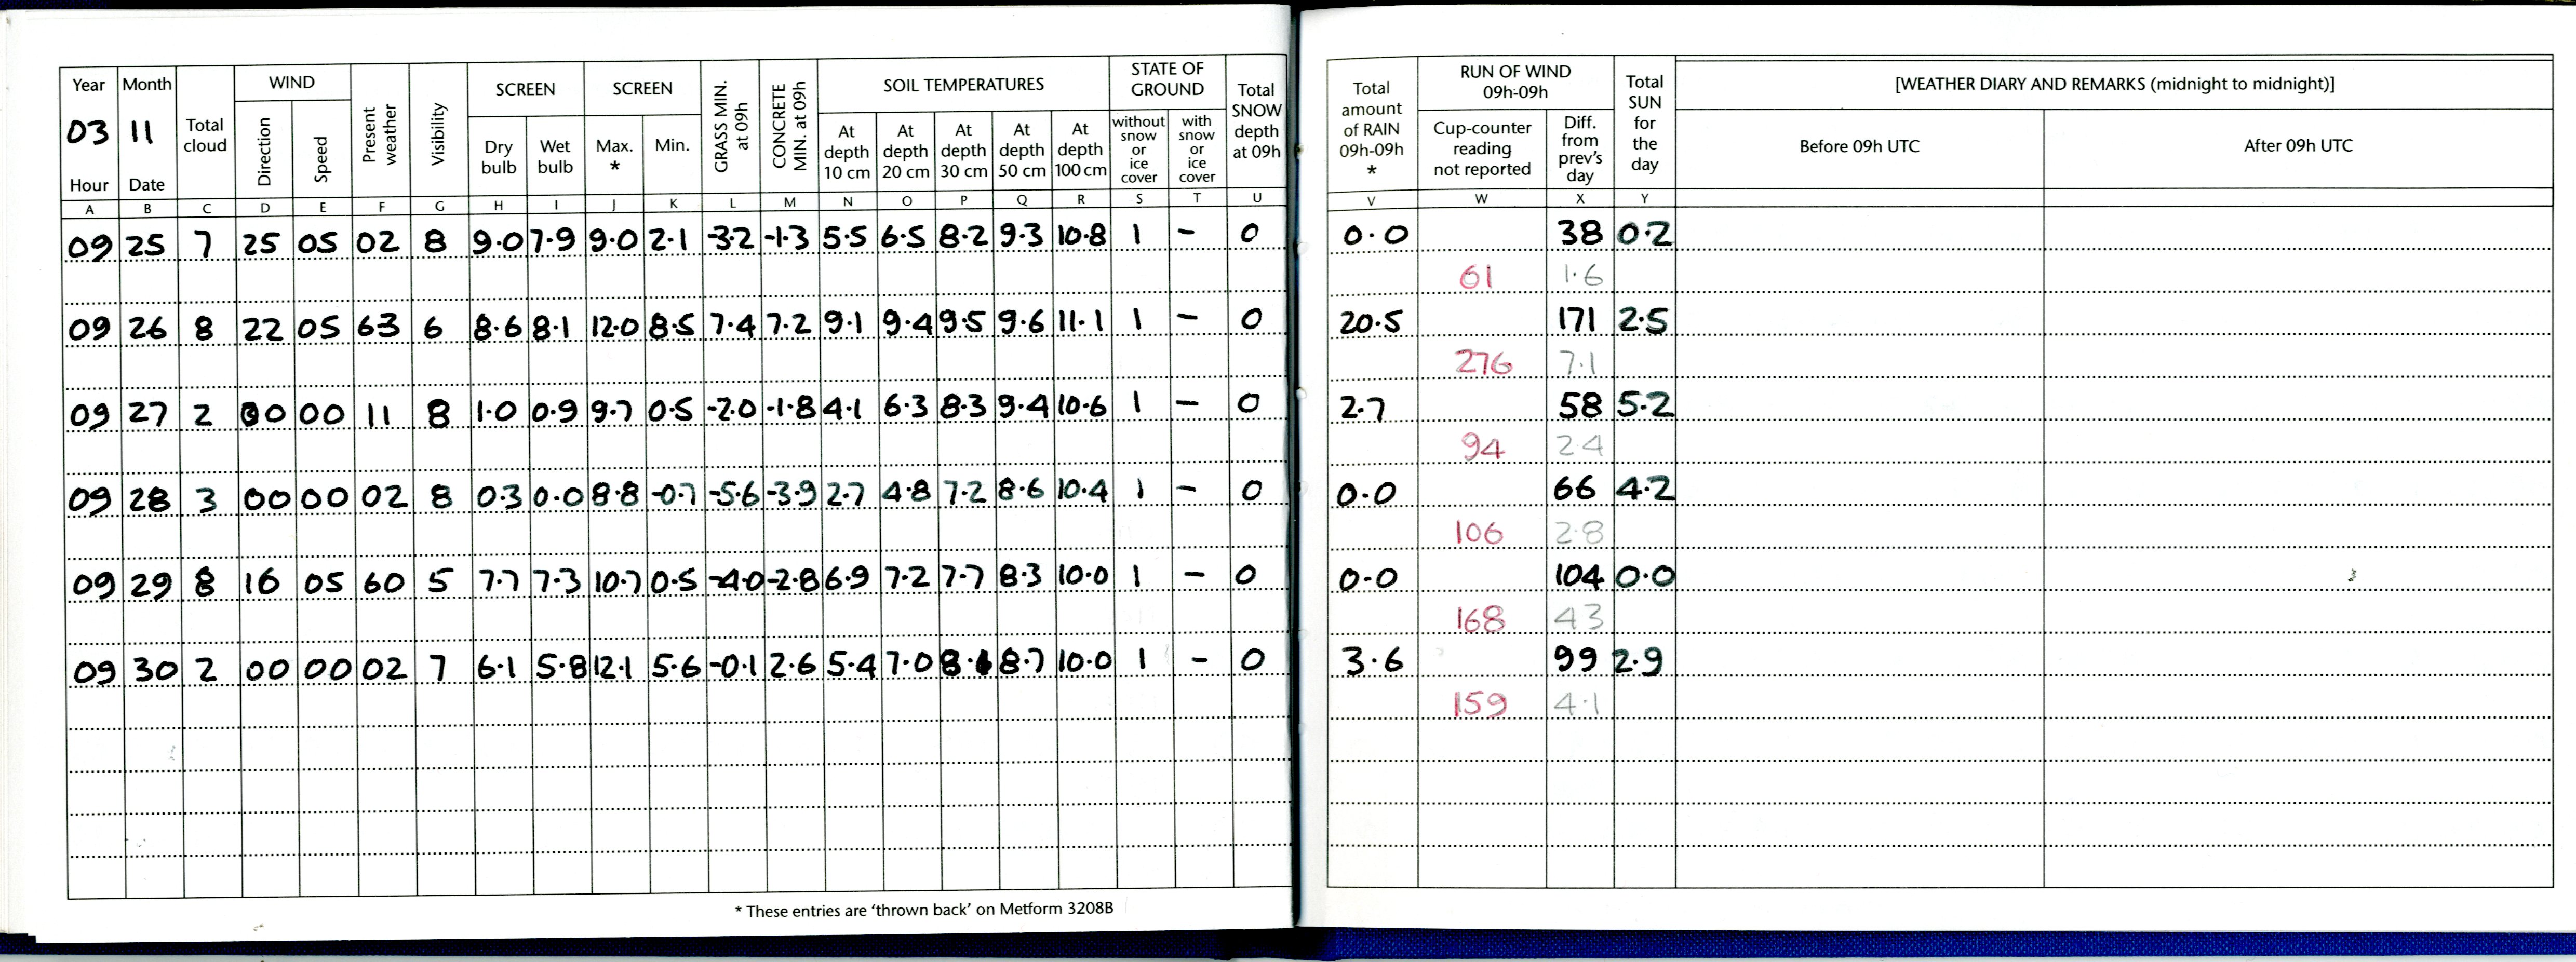 Year Month Total cloud WIND Present weather Visibility SCREEN SCREEN GRASS MIN. at 09h CONCRETE MIN. at 09h SOIL TEMPERATURES STATE OF GROUND Total SNOW depth at 09h Total amount of RAIN 09h-09h * RUN OF WIND 09h-09h Total SUN for the day [WEATHER DIARY AND REMARKS (midnight to midnight)]
03 11 Direction Speed Dry bulb Wet bulb Max. * Min. At depth 10 cm At depth 20 cm At depth 30 cm At depth 50 cm At depth 100 cm without snow or ice cover with snow or ice cover Cup-counter reading not reported Diff. from prev's day Before 09h UTC After 09h UTC
Hour Date
A B C D E F G H I J K L M N O P Q R S T U V W X Y
09 25 7 25 05 02 8 9.0 7.9 9.0 2.1 -3.2 -1.3 5.5 6.5 8.2 9.3 10.8 1 - 0 0.0 38 0.2
61 1.6
09 26 8 22 05 63 6 8.6 8.1 12.0 8.5 7.4 7.2 9.1 9.4 9.5 9.6 11.1 1 - 0 20.5 171 2.5
276 7.1
09 27 2 00 00 11 8 1.0 0.9 9.7 0.5 -2.0 -1.8 4.1 6.3 8.3 9.4 10.6 1 - 0 2.7 58 5.2
94 2.4
09 28 3 00 00 02 8 0.3 0.0 8.8 -0.7 -5.6 -3.9 2.7 4.8 7.2 8.6 10.4 1 - 0 0.0 66 4.2
106 2.8
09 29 8 16 05 60 5 7.7 7.3 10.7 0.5 -4.0 -2.8 6.9 7.2 7.7 8.3 10.0 1 - 0 0.0 104 0.0
168 43
09 30 2 00 00 02 7 6.1 5.8 12.1 5.6 -0.1 2.6 5.4 7.0 8.7 10.0 1 - 0 3.6 99 2.9
159 4.1
* These entries are ‘thrown back’ on Metform 3208B